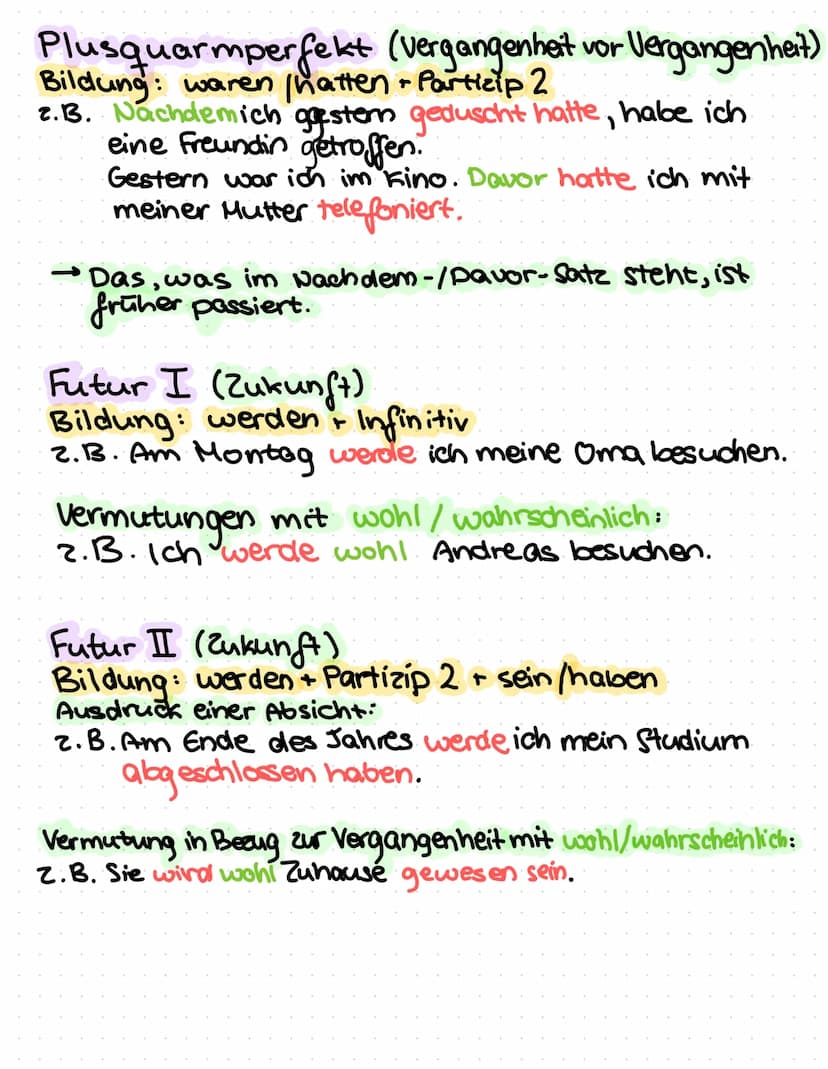 Plusquarmperfekt (Vergangenheit vor Vergangenheit)
Bildung: waren /hatten + Partizip 2
z.B. Nachdem ich gestern geduscht hatte, habe ich
eine Freundin getroffen.
Gestern war ich im Kino. Davor hatte ich mit
meiner Mutter telefoniert.
→ Das, was im Nachdem-/Davor-Satz steht, ist
früher passiert.
Futur I (Zukunft)
Bildung: werden + Infinitiv
z.B. Am Montag werde ich meine Oma besuchen.
Vermutungen mit wohl / wahrscheinlich:
z.B. Ich werde wohl Andreas besuchen.
Futur II (Zukunft)
Bildung: werden + Partizip 2 + sein/haben
Ausdruck einer Absicht:
z.B. Am Ende des Jahres werde ich mein Studium
abgeschlossen haben.
Vermutung in Bezug zur Vergangenheit mit wohl/wahrscheinlich:
z.B. Sie wird wohl Zuhause gewesen sein.